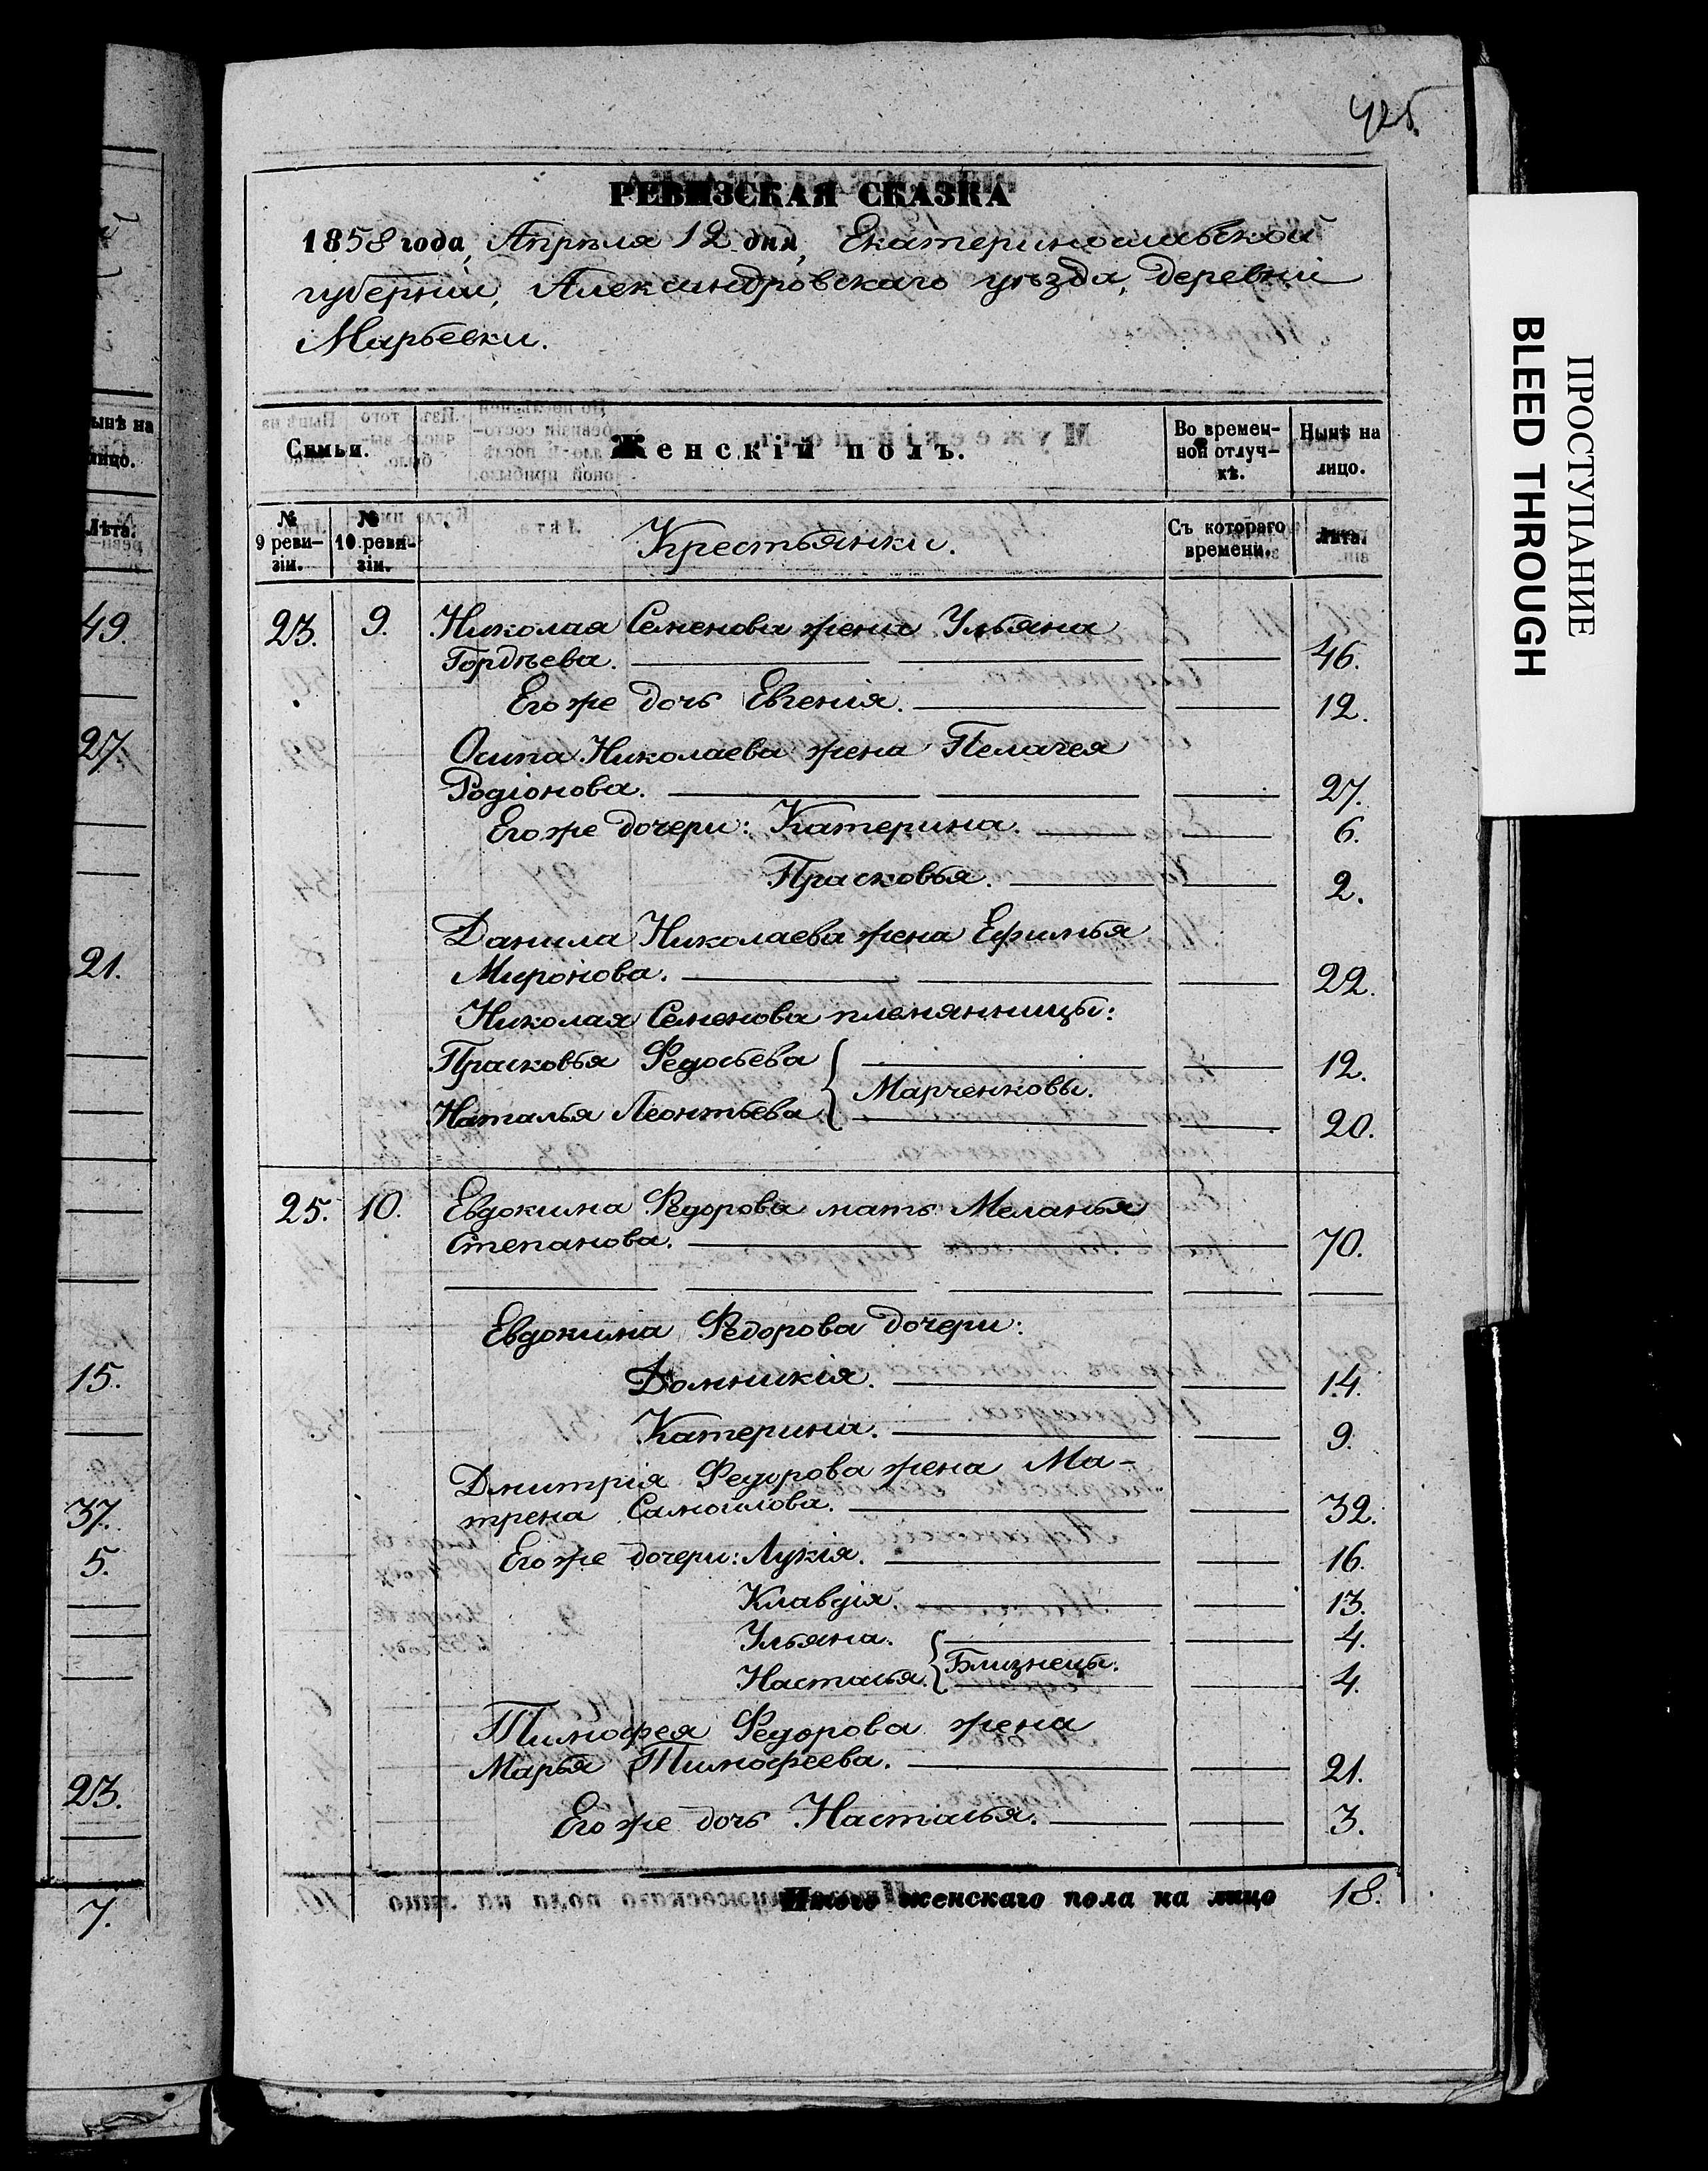 425.
РЕВИЗСКАЯ СКАЗКА
1858 года, Апрѣля 12 дня, Екатеринославской
губерніи, Александровскаго уѣзда, деревни
Марьевки.
Семьи.
Женскій полъ.
Во времен-
ной отлуч-
кѣ.
Нынѣ на
лицо.
№
9 реви-
зіи.
№
10 реви-
зіи.
Крестьянки.
Съ котораго
времени.
Лѣта.
23. 9. Николая Семенова жена Ульяна
Гордѣева. 46.
Его же дочь Евгенія. 12.
Осипа Николаева жена Пелагея
Родіонова. 27.
Его же дочери: Катерина. 6.
Прасковья. 2.
Данила Николаева жена Ефимья
Миронова. 22.
Николая Семенова племянницы:
Прасковья Федосьева 12.
Марченковы.
Наталья Леонтьева 20.
25. 10. Евдокима Федорова мать Меланья
Степанова. 70.
Евдокима Федорова дочери:
Домникія. 14.
Катерина. 9.
Дмитрія Федорова жена Ма-
трена Самойлова. 32.
Его же дочери: Лукія. 16.
Клавдія. 13.
Ульяна. 4.
Близнецы.
Настасья. 4.
Тимофея Федорова жена
Марья Тимофеева. 21.
Его же дочь Настасья. 3.
Итого женскаго пола на лицо 18.
ынѣ на
лицо.
Лѣта.
49.
27.
21.
15.
37.
5.
23.
7.
ПРОСТУПАНИЕ
BLEED THROUGH